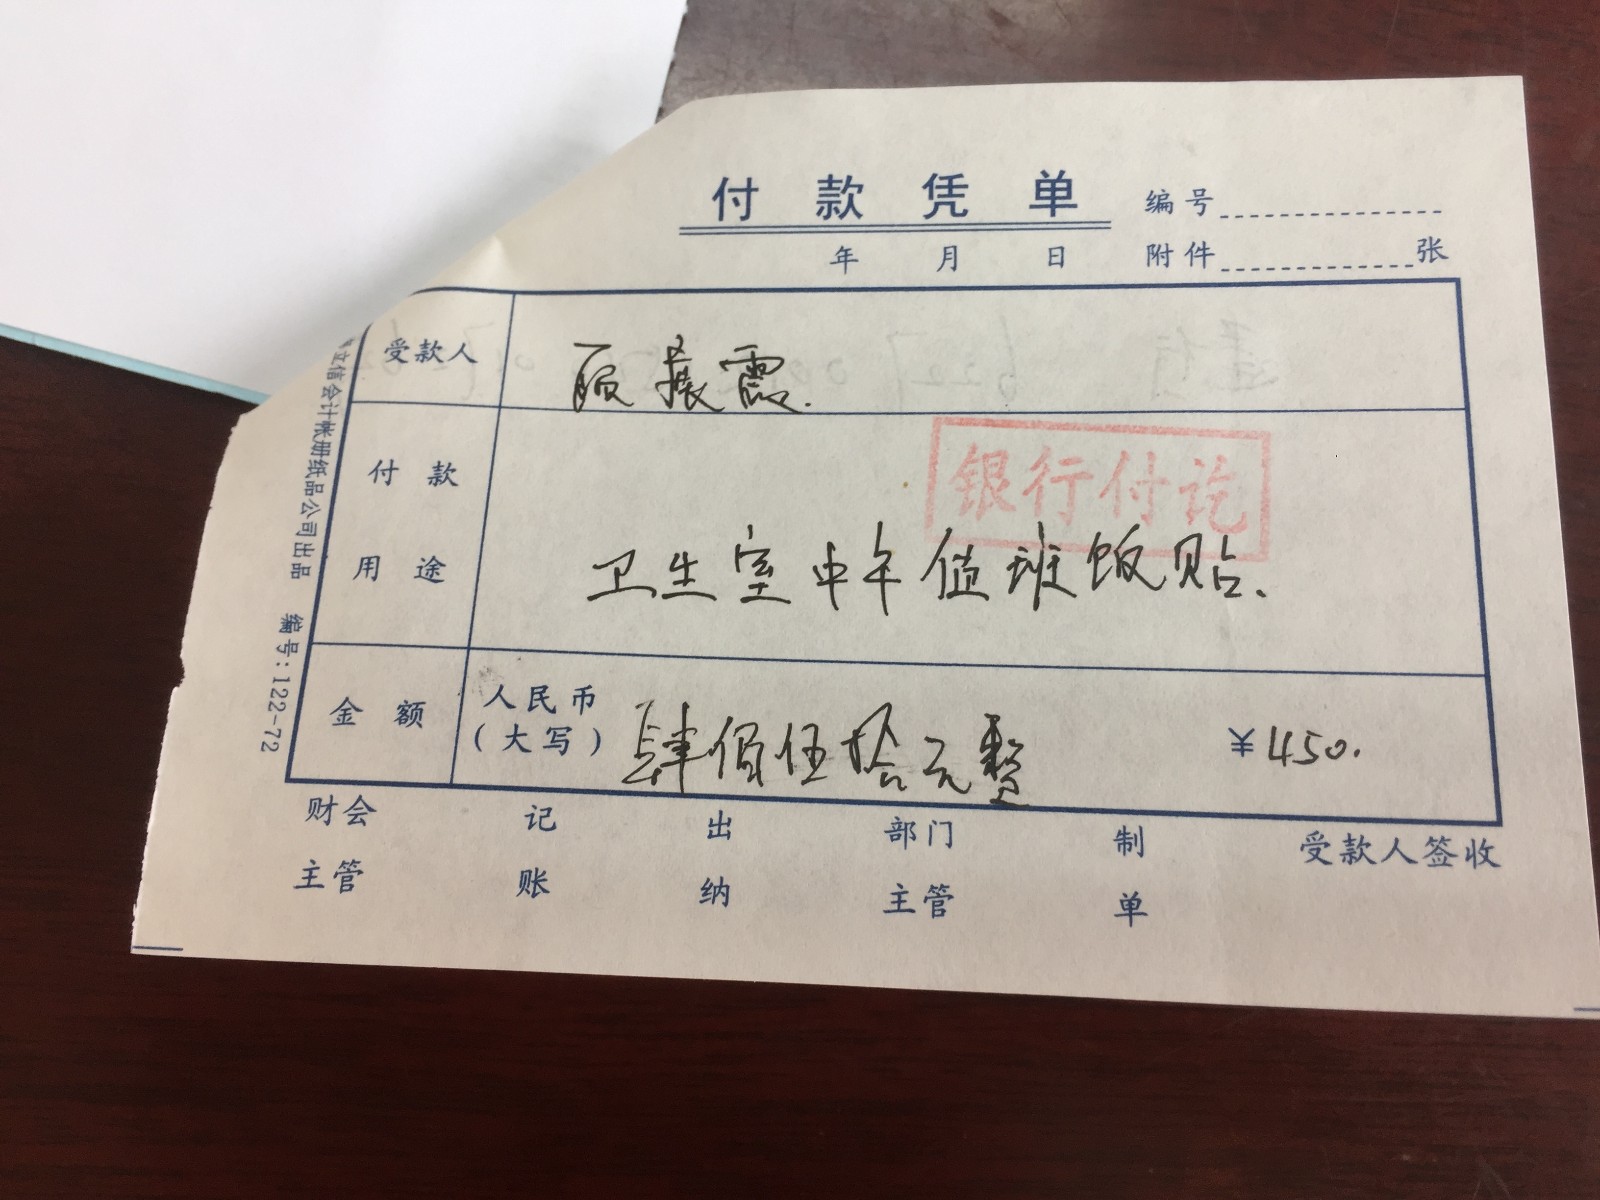 付款凭单
编号
年 月 日
附件 张
受款人
顾振霞.
付款用途
银行付讫
卫生室中午值班饭贴.
金额
人民币(大写)
肆佰伍拾元整
¥450.
财会主管
记账
出纳
部门主管
制单
受款人签收
立信会计帐册纸品公司出品 编号:122-72